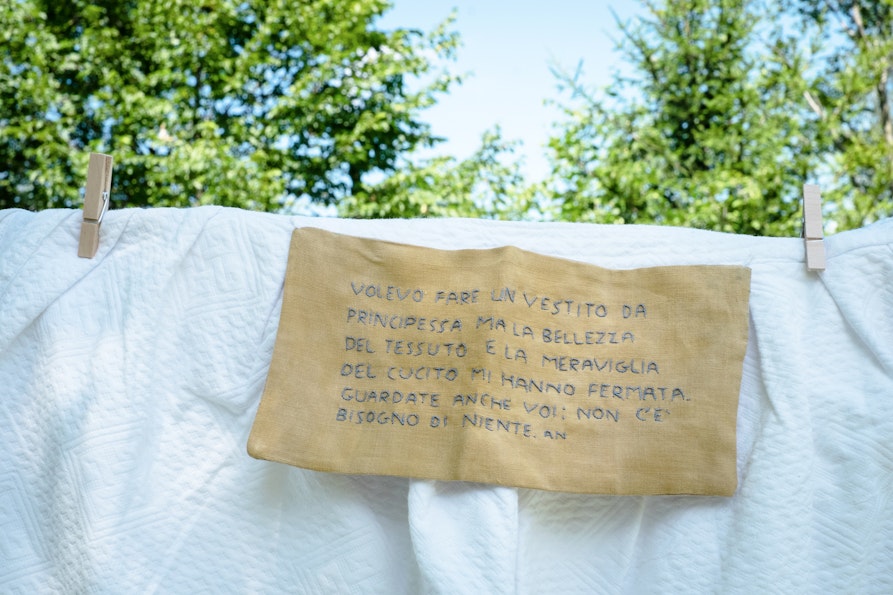 VOLEVO FARE UN VESTITO DA
PRINCIPESSA MA LA BELLEZZA
DEL TESSUTO E LA MERAVIGLIA
DEL CUCITO MI HANNO FERMATA.
GUARDATE ANCHE VOI; NON C'E'
BISOGNO DI NIENTE. AN